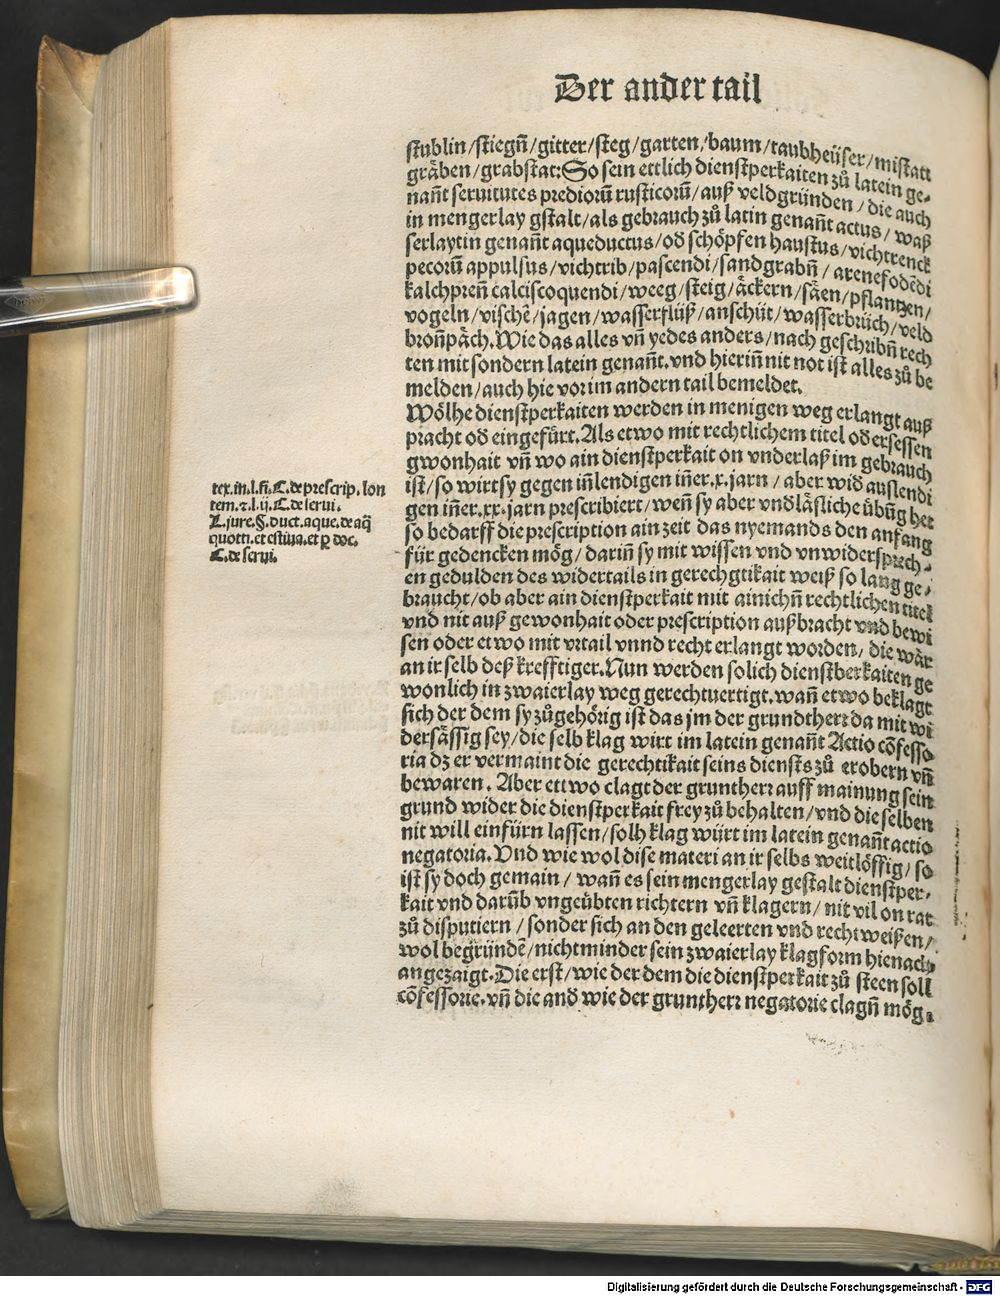 Der ander tail
stublin/stiegñ/gitter/steg/garten/baum/taubheüser/mistatt
gräben/grabstat:So sein ettlich dienstperkaiten zů latein ge-
nañt seruitutes prediorū rusticorū/auß veldgründen/die auch
in mengerlay gstalt/als gebrauch zů latin genañt actus/waß
serlaytin genañt aqueductus/od schöpfen haustus/vichtrenck
pecorū appulsus/vichtrib/pascendi/sandgrabñ/arenefodēdi
kalchpreñ calciscoquendi/weeg/steig/äckern/säen/pflantzen/
vogeln/vischē/jagen/wasserflüß/anschüt/wasserbrüch/veld
broñpäch.Wie das alles vñ yedes anders/nach geschribñ rech
ten mit sondern latein genañt.vnd hieriñ nit not ist alles zů be
melden/auch hie vor im andern tail bemeldet.
Wölhe dienstperkaiten werden in menigen weg erlangt auß
pracht od eingefürt.Als etwo mit rechtlichem titel od ersessen
gwonhait vñ wo ain dienstperkait on vnderlaß im gebrauch
ist/so wirt sy gegen iñlendigen iñer.x.jarn/aber wid auslendi
gen iñer.xx.jarn prescribiert/weñ sy aber vndläsliche übūg het
so bedarff die prescription ain zeit das nyemands den anfang
für gedencken mög/dariñ sy mit wissen vnd vnwidersprech-
en gedulden des widertails in gerechgtikait weiß so lang ge-
braucht/ob aber ain dienstperkait mit ainichñ rechtlichen titel
vnd nit auß gewonhait oder prescription außbracht vnd bewi
sen oder etwo mit vrtail vnnd recht erlangt worden/die wär
an ir selb deß krefftiger.Nun werden solich dienstberkaiten ge
wonlich in zwaierlay weg gerechtuertigt.wañ etwo beklagt
sich der dem sy zůgehörig ist das jm der grundtherr da mit wi
dersässig sey/die selb klag wirt im latein genañt Actio cōfesso
ria dz er vermaint die gerechtikait seins diensts zů erobern vñ
bewaren. Aber ettwo clagt der gruntherr auff mainung sein
grund wider die dienstperkait frey zů behalten/vnd die selben
nit will einfürn lassen/solh klag würt im latein genañt actio
negatoria.Vnd wie wol dise materi an ir selbs weitlöffig/so
ist sy doch gemain/wañ es sein mengerlay gestalt dienstper-
kait vnd darūb vngeübten richtern vñ klagern/nit vil on rat
zů disputiern/sonder sich an den geleerten vnd recht weißen/
wol begründē/nicht minder sein zwaierlay klagform hienach
angezaigt.Die erst/wie der dem die dienstperkait zů steen soll
cōfessorie.vñ die and wie der gruntherr negatorie clagñ mög.
tex.in.l.fi.C.de prescrip.lon
tem.⁊.l.ij.C.de serui.
L.jure.§.duct.aque.de aq̄
quotti.et estiua.et p doc.
C.de serui.
Digitalisierung gefördert durch die Deutsche Forschungsgemeinschaft - DFG